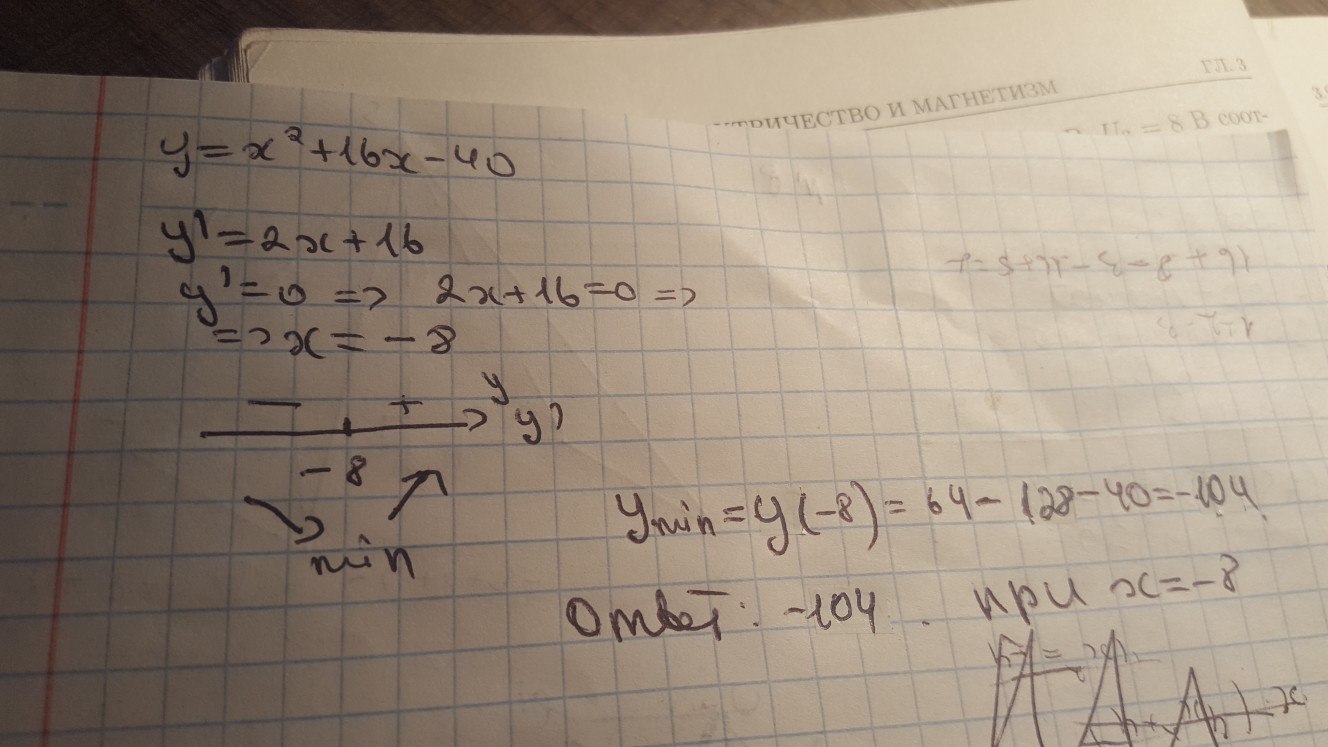 ГЛ. 3
ТРИЧЕСТВО И МАГНЕТИЗМ
= 8 В соот-
y = x² + 16x - 40
y' = 2x + 16
y' = 0 => 2x + 16 = 0 =>
=> x = - 8
— + y
y'
- 8
min
y min = y(-8) = 64 - 128 - 40 = -104
Ответ: -104 . при x = -8